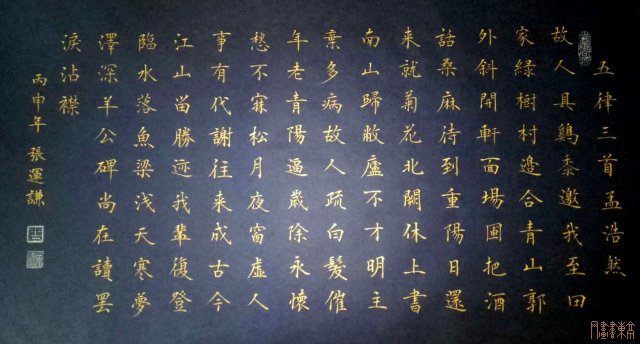 五律三首孟浩然
故人具鷄黍邀我至田
家綠樹村邊合青山郭
外斜開軒面場圃把酒
話桑麻待到重陽日還
来就菊花北闕休上書
南山歸敝廬不才明主
棄多病故人疏白髮催
年老青陽逼歲除永懷
愁不寐松月夜窗虛人
事有代謝往来成古今
江山留勝迹我輩復登
臨水落魚梁浅天寒夢
澤深羊公碑尚在讀罷
淚沾襟
丙申年 張運謙